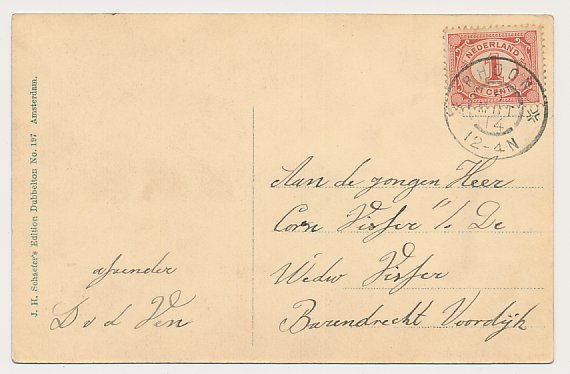 J. H. Schaefer's Edition Dubbelton No. 197 Amsterdam.
NEDERLAND
1
CENT
RHOON
14
12-4N
Aan de jongen Heer
Corn Visser % De
Wedw Visser
Barendrecht Voordijk
afzender
D v d Ven